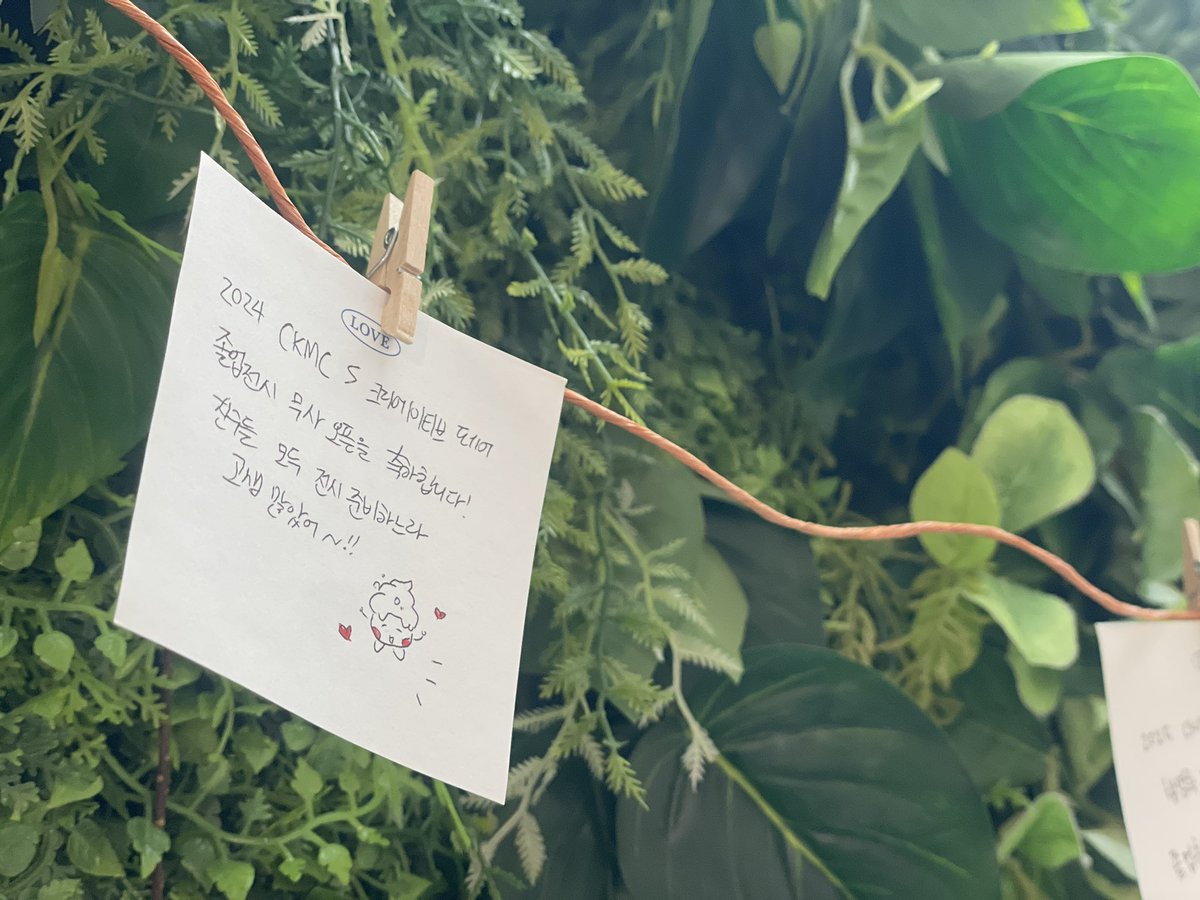 LOVE
2024 CKMC S 크리에이티브 페어
졸업전시 무사 오픈을 축하합니다!
친구들 모두 전시 준비하느라
고생 많았어~!!